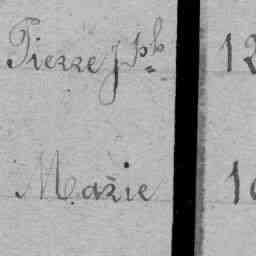 Pierre Jph 12
Marie 10